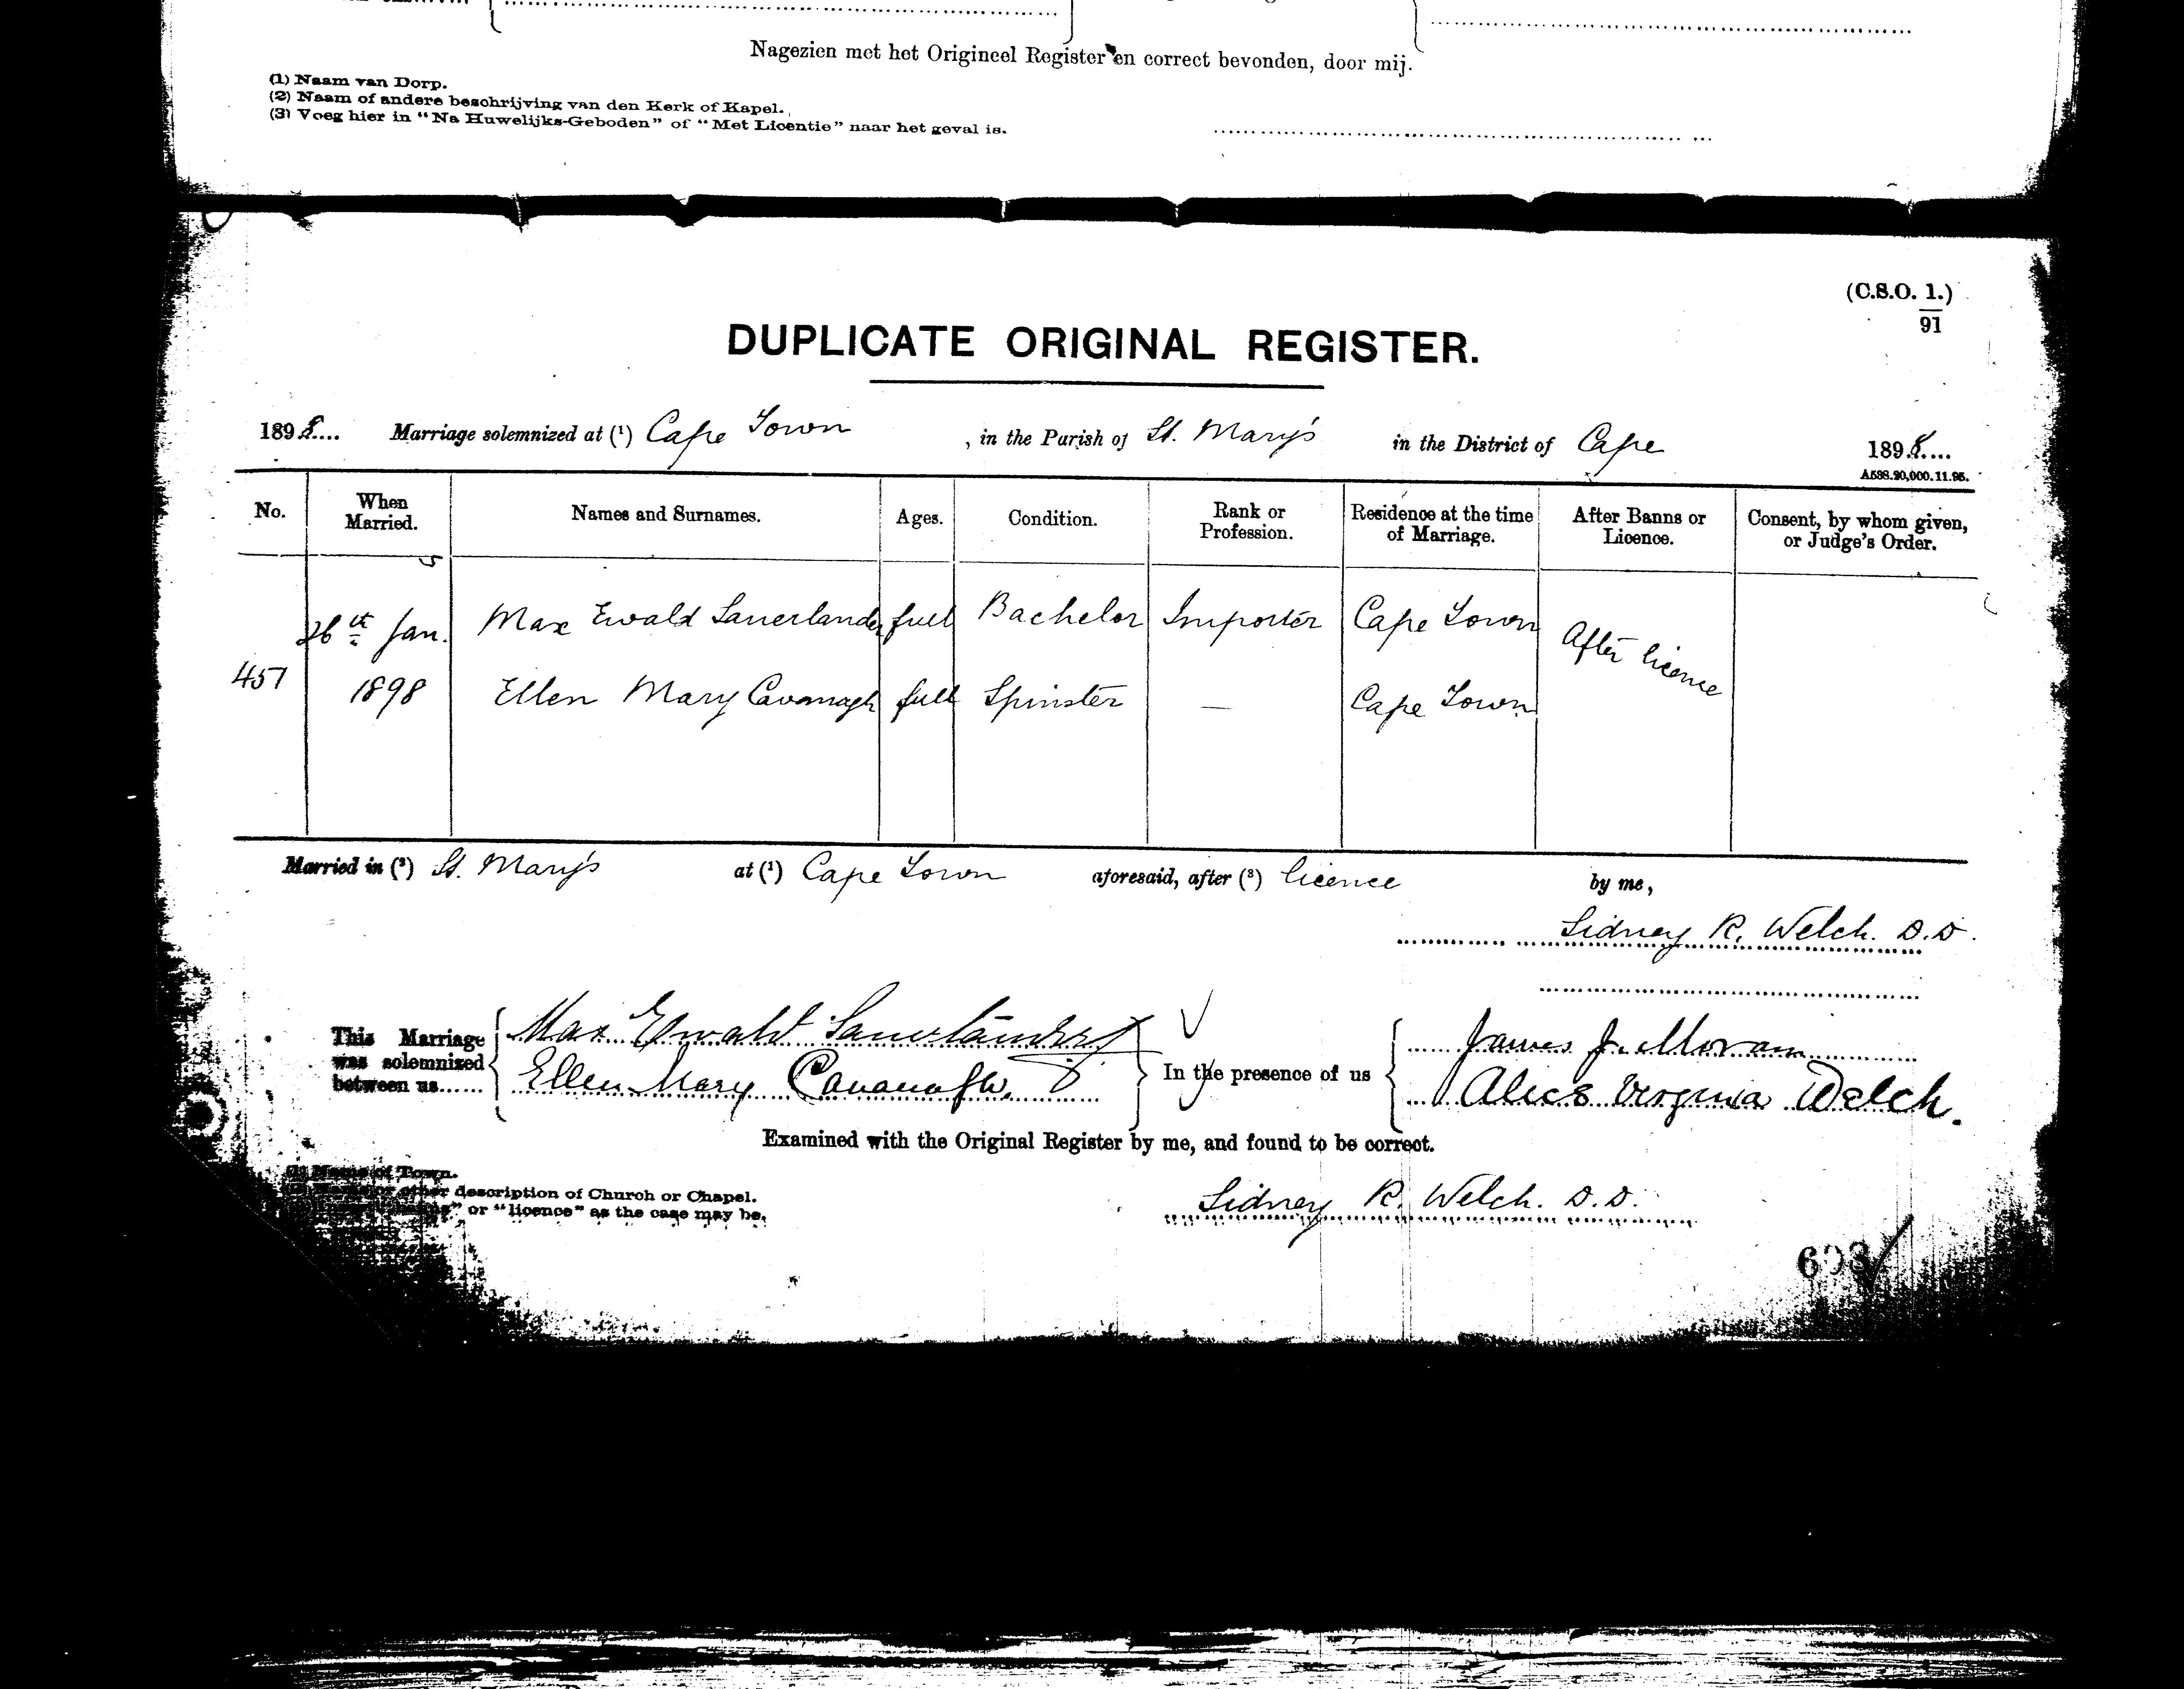 Nagezien met het Origineel Register en correct bevonden, door mij.
(1) Naam van Dorp.
(2) Naam of andere beschrijving van den Kerk of Kapel.
(3) Voeg hier in "Na Huwelijks-Geboden" of "Met Licentie" naar het geval is.
(C.S.O. 1.)
91
DUPLICATE ORIGINAL REGISTER.
1898.... Marriage solemnized at (1) Cape Town, in the Parish of St. Mary's in the District of Cape 1898....
A538.20,000.11.95.
No. When Married. Names and Surnames. Ages. Condition. Rank or Profession. Residence at the time of Marriage. After Banns or Licence. Consent, by whom given, or Judge's Order.
26th Jan. Max Ewald Sauerlander full Bachelor Importer Cape Town After licence
457 1898 Ellen Mary Cavanagh full Spinster — Cape Town
Married in (2) St. Mary's at (1) Cape Town aforesaid, after (3) licence by me,
Sidney R. Welch. D.D.
This Marriage was solemnized between us...... Max Ewald Sauerländer In the presence of us James J. Moran
Ellen Mary Cavanagh. Alice Virginia Welch.
Examined with the Original Register by me, and found to be correct.
(1) Name of Town.
other description of Church or Chapel.
or "licence" as the case may be.
Sidney R. Welch. D.D.